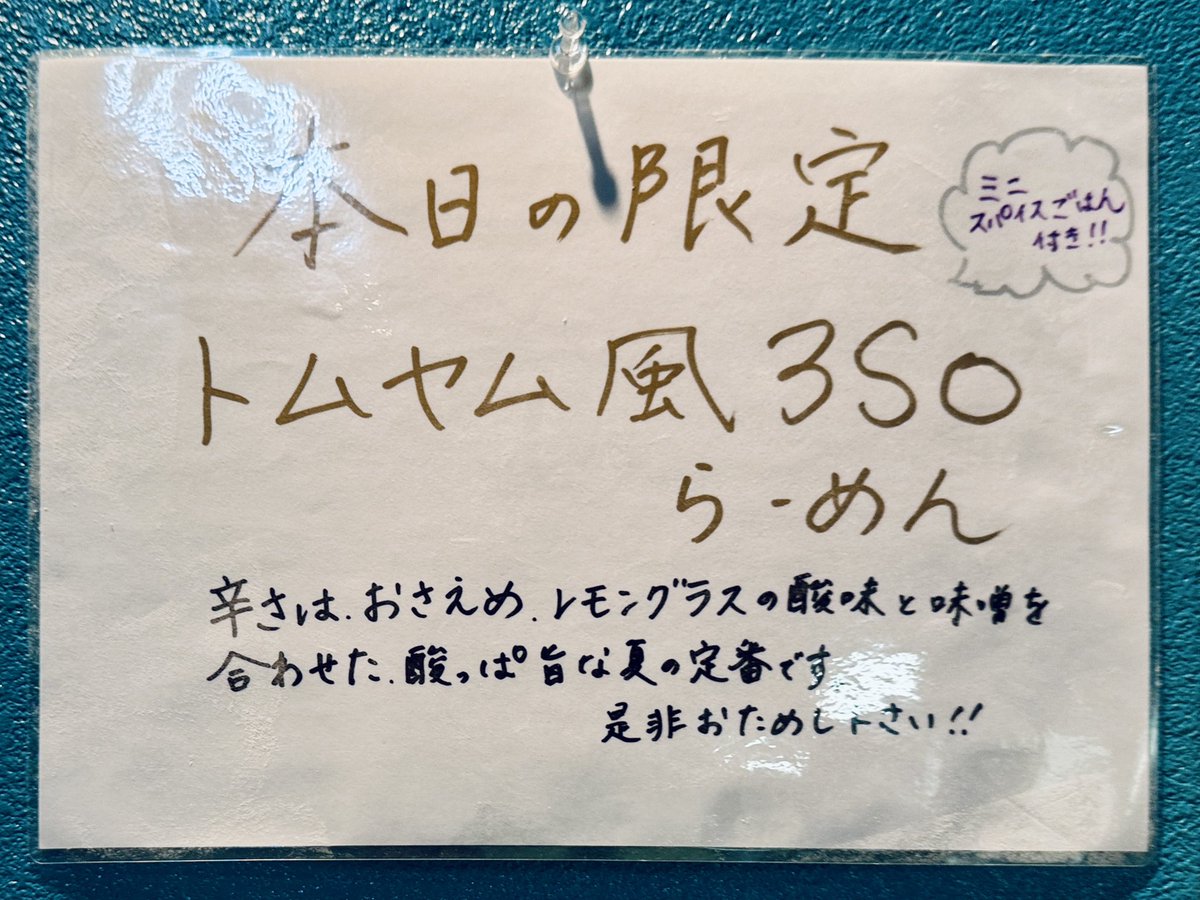 本日の限定
ミニ
スパイスごはん
付き!!
トムヤム風 3SO
らーめん
辛さは、おさえめ、レモングラスの酸味と味噌を
合わせた、酸っぱ旨な夏の定番です
是非おためし下さい!!